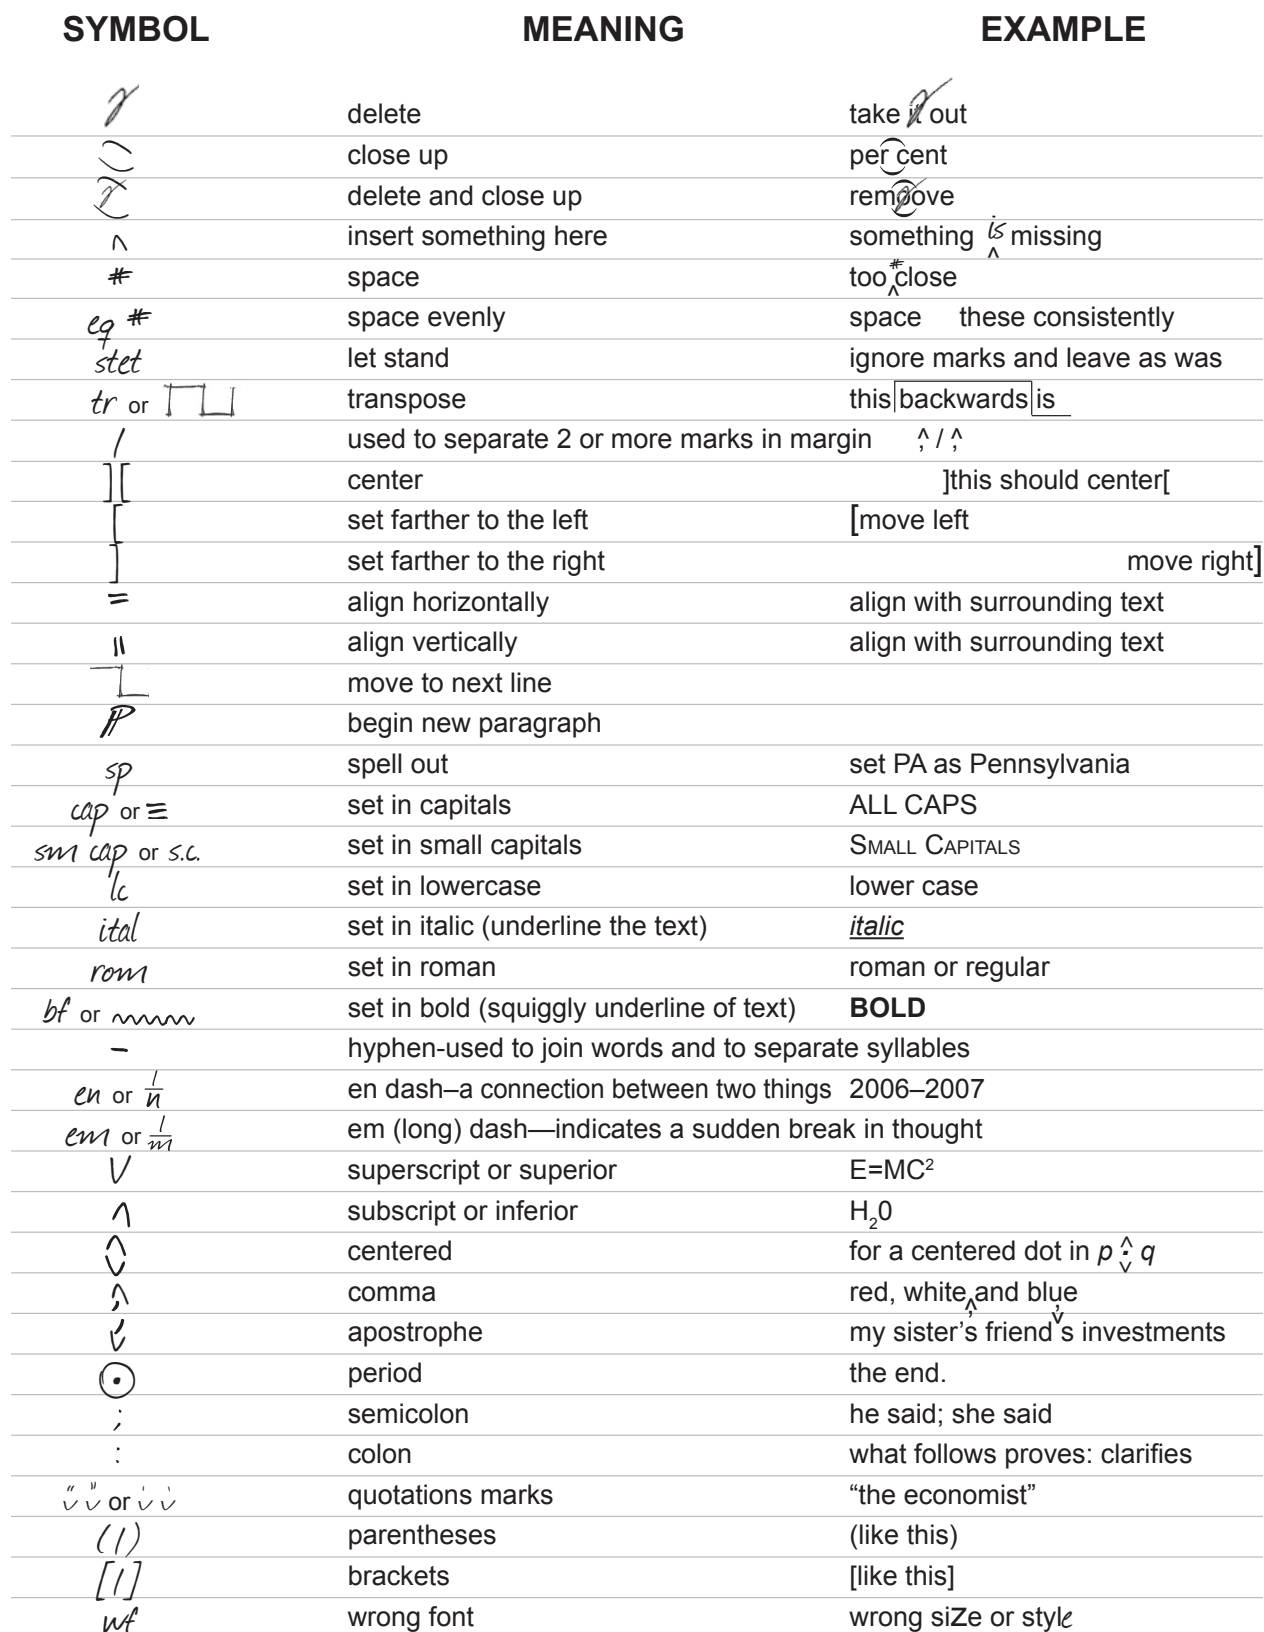 SYMBOL MEANING EXAMPLE
delete take it out
close up per cent
delete and close up remoove
^ insert something here something is ^ missing
# space too # ^ close
eq # space evenly space these consistently
stet let stand ignore marks and leave as was
tr or transpose this backwards is
/ used to separate 2 or more marks in margin ^, / ^,
][ center ]this should center[
[ set farther to the left [move left
] set farther to the right move right]
= align horizontally align with surrounding text
|| align vertically align with surrounding text
move to next line
¶ begin new paragraph
sp spell out set PA as Pennsylvania
cap or ≡ set in capitals ALL CAPS
sm cap or s.c. set in small capitals Small Capitals
lc set in lowercase lower case
ital set in italic (underline the text) italic
rom set in roman roman or regular
bf or set in bold (squiggly underline of text) BOLD
- hyphen-used to join words and to separate syllables
en or 1/n en dash–a connection between two things 2006–2007
em or 1/m em (long) dash—indicates a sudden break in thought
∨ superscript or superior E=MC²
∧ subscript or inferior H₂0
centered for a centered dot in p · q
, comma red, white, and blue
' apostrophe my sister’s friend's investments
⊙ period the end.
; semicolon he said; she said
: colon what follows proves: clarifies
“ ” or ‘ ’ quotations marks “the economist”
(/) parentheses (like this)
[/] brackets [like this]
wf wrong font wrong siZe or style